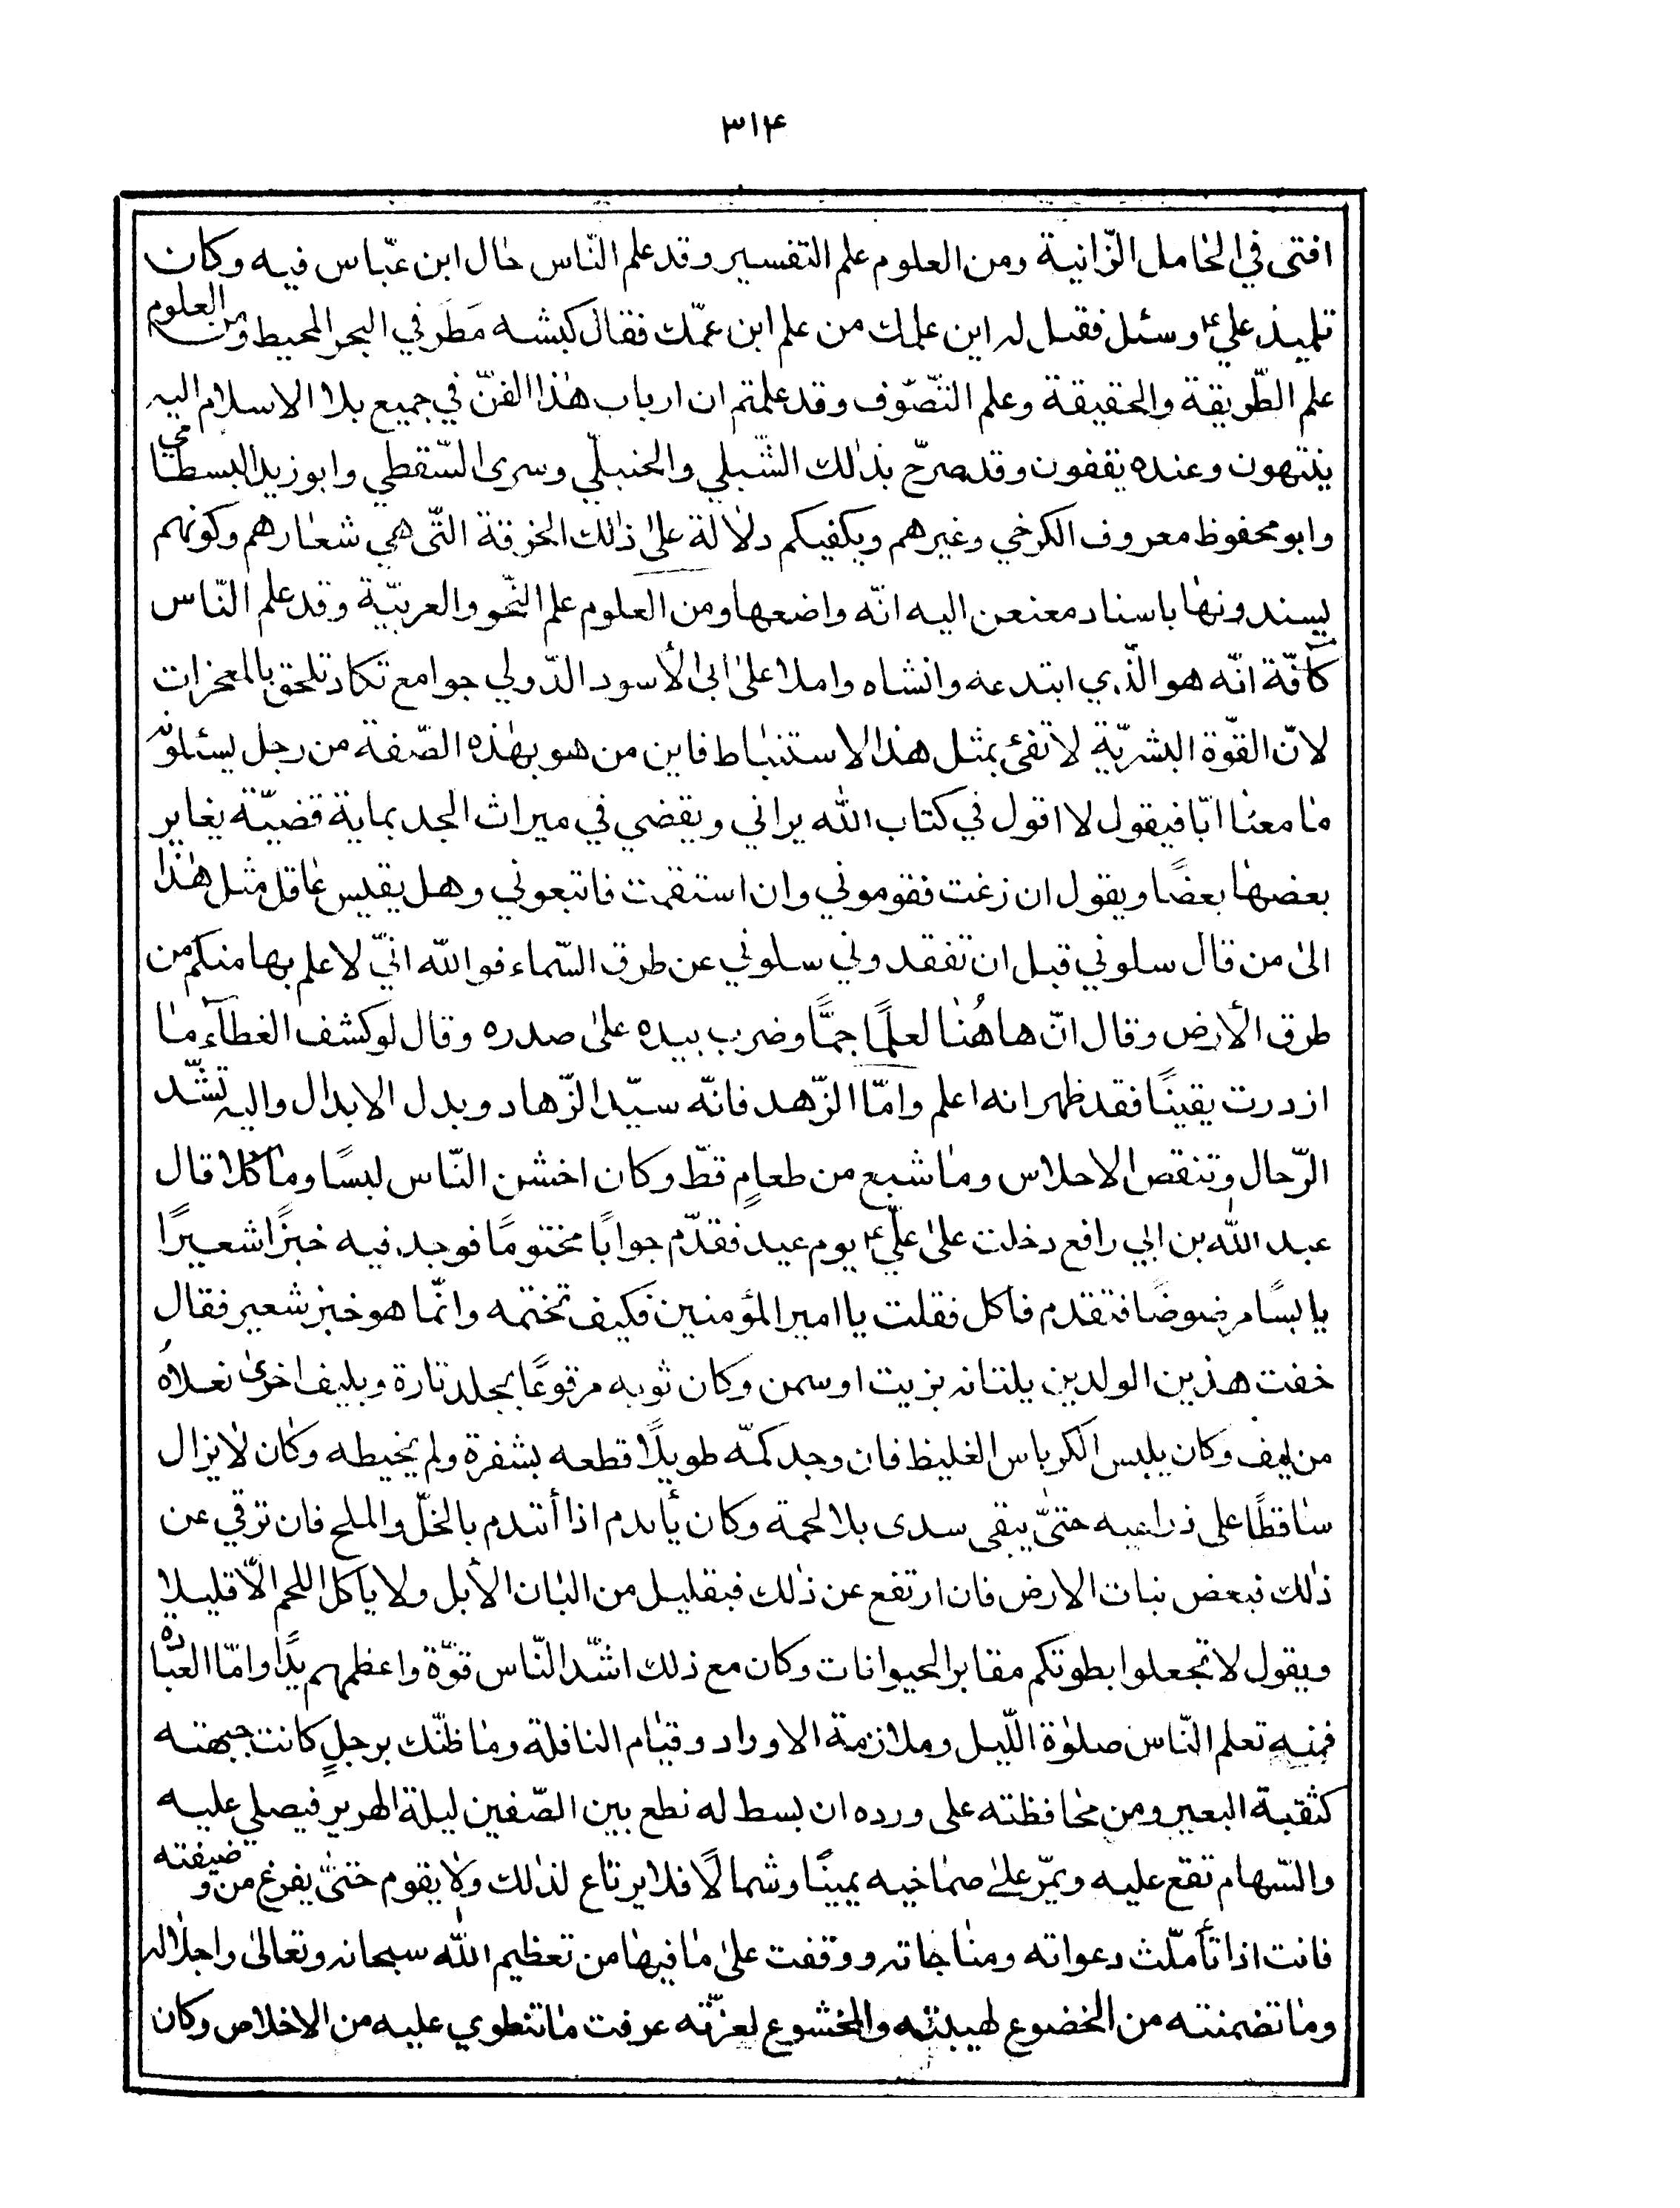 ٣١۴
افتى في الحامل الزّانية ومن العلوم علم التفسير وقد علم النّاس حال ابن عبّاس فيه وكان
تلميذ علي ع وسئل فقيل له اين علمك من علم ابن عمّك فقال كبشه مَطَر في البحر المحيط ومن العلوم
علم الطّريقة والحقيقة وعلم التّصّوف وقد علمتم ان ارباب هذا الفنّ في جميع بلاا الاسلام اليه
ينتهون وعنده يقفون وقد صرحّ بذلك الشّبلي والحنبلّي وسرى السّقطي وابو زيد البسطامي
وابو محفوظ معروف الكرخي وغيرهم ويكفيكم دلالة على ذلك الخرقة التّى هي شعارهم وكونهم
يسندونها باسناد معنعن اليه انّه واضعها ومن العلوم علم النّحو والعربيّة وقد علم النّاس
كافّة انّه هو الّذي ابتدعه وانشاه واملا على ابى الأسود الدّولي جوامع تكاد تلحق بالمعجزات
لانّ القوّة البشريّة لا تفئ بمثل هذا الاستنباط فاين من هو بهذه الصّفة من رجل يسئلونه
ما معنا ابّا فيقول لا اقول في كتاب الله يراني ويقضي في ميراث الجد بماية قضيّة يغاير
بعضها بعضًا ويقول ان زغت فقوموني وان استقمت فاتبعوني وهل يقيس عاقل مثل هذا
الى من قال سلوني قبل ان تفقدوني سلوني عن طرق السّماء فوالله انّي لاعلم بها منكم من
طرق الأرض وقال انّ هاهُنا لعلمًا جمًّا وضرب بيده على صدره وقال لو كشف الغطاّء ما
ازددت يقينًا فقد ظهر انه اعلم وامّا الزّهد فانّه سيّد الزّهاد وبدل الابدال واليه تشّد
الرّحال وتنقص الاحلاس وما شبع من طعامٍ قطّ وكان اخشن النّاس لبسًا وماكلا قال
عبد الله بن ابي رافع دخلت على علّي ع يوم عيد فقدّم جوابًا مختومًا فوجد فيه خبزًا شعيرًا
يابسًا مرضوضًا فتقدم فاكل فقلت يا امير المؤمنين فكيف تختمه وانّما هو خبز شعير فقال
خفت هذين الولدين يلتانه بزيت او سمن وكان ثوبه مرقوعًا بجلد تارة وبليف اخرى نعلاهُ
من ليف وكان يلبس الكرباس الغليظ فان وجد كمّه طويلًا قطعه بشفرة ولم يخيطه وكان لا يزال
ساقطًا على ذراعيه حتىّ يبقى سدى بلا لحمة وكان يأبدم اذا أتدم بالخلّ والملح فان ترقي عن
ذلك فبعض نبات الارض فان ارتفع عن ذلك فبقليل من البان الأبل ولا ياكل اللحم الّا قليلا
ويقول لا تجعلوا بطونكم مقابر الحيوانات وكان مع ذلك اشّد النّاس قوّة واعظمهم يدًا وامّا العبّادة
فمنه تعلم النّاس صلوة اللّيل وملازمة الاوراد وقيام النافلة وما ظنّك برجلٍ كانت جبهته
كثقبة البعير ومن محافظته على ورده ان بسط له نطع بين الصّفين ليلة الهرير فيصلي عليه
والسّهام تقع عليه ويمّر على صماخيه يمينًا وشمالًا فلا يرتاع لذلك ولا يقوم حتىّ يفرغ من وضيفته
فانت اذا تأملّت دعواته ومناجاته ووقفت على ما فيها من تعظيم الله سبحانه وتعالى واجلاله
وما تضمنته من الخضوع لهيبته والخشوع لعزّته عرفت ما تنطوي عليه من الاخلاص وكان